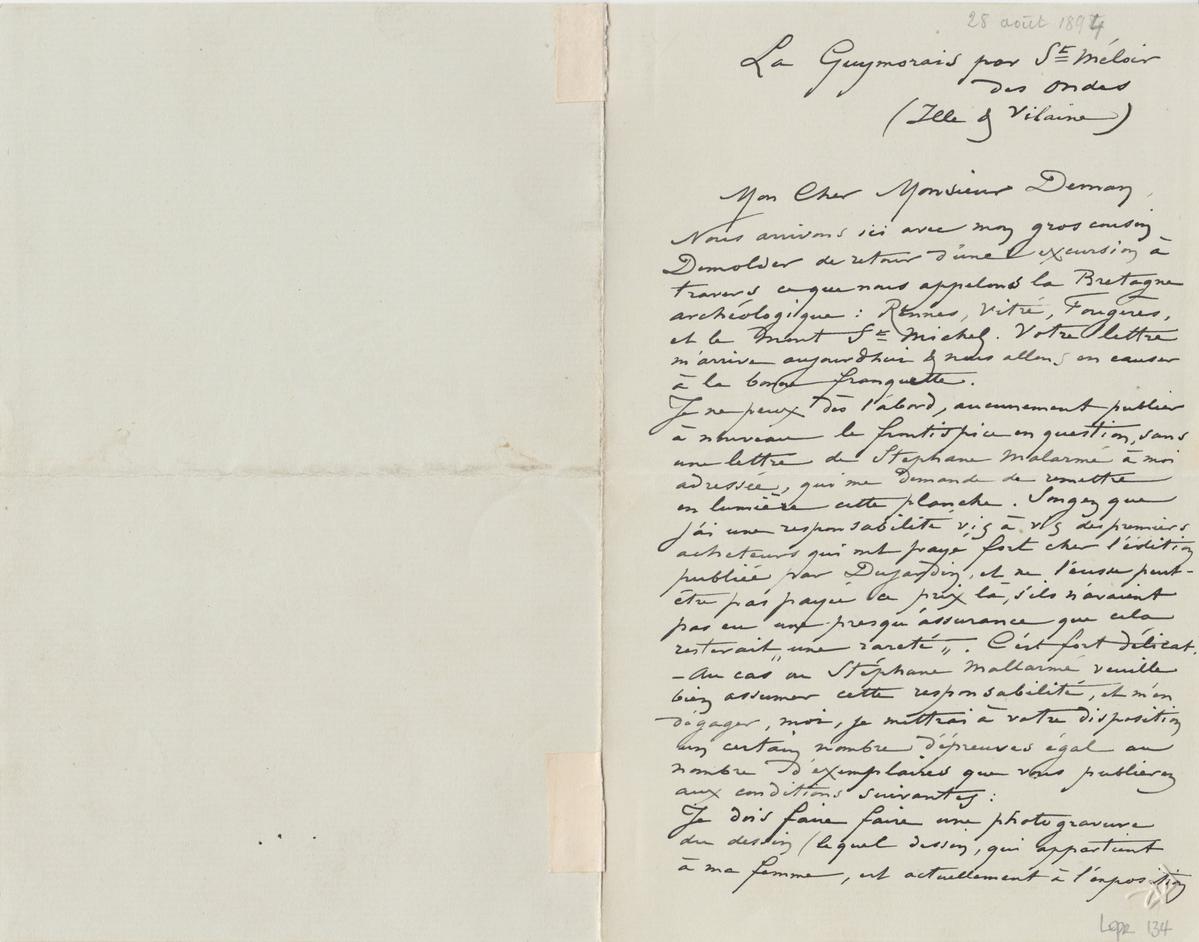 28 août 1894
La Guymorais par St Méloir
des ondes
(Ille & Vilaine)
Mon Cher Monsieur Deman,
Nous arrivons ici avec mon gros cousin
Demolder de retour d'une excursion à
travers ce que nous appelons la Bretagne
archéologique : Rennes, Vitré, Fougères,
et le Mont St Michel. Votre lettre
m'arrive aujourdhui & nous allons en causer
à la bonne franquette.
Je ne peux dès l'abord, aucunement publier
à nouveau le frontispice en question, sans
une lettre de Stéphane Malarmé à moi
adressée, qui me demande de remettre
en lumière cette planche. Songez que
j'ai une responsabilité vis à vis des premiers
acheteurs qui ont payé fort cher l'édition
publiée par Dujardin, et ne l'eusse peut-
être pas payée ce prix là, s'ils n'avaient
pas eu une presqu'assurance que cela
resterait „une rareté„. C'est fort délicat.
– Au cas ou Stéphane Mallarmé veuille
bien assumer cette responsabilité, et m'en
dégager, moi, je mettrai à votre disposition
un certain nombre d'épreuves égal au
nombre d'exemplaires que vous publierez
aux conditions suivantes :
Je dois faire faire une photogravure
du dessin (lequel dessin, qui appartient
à ma femme, est actuellement à l'exposition
LepR 134